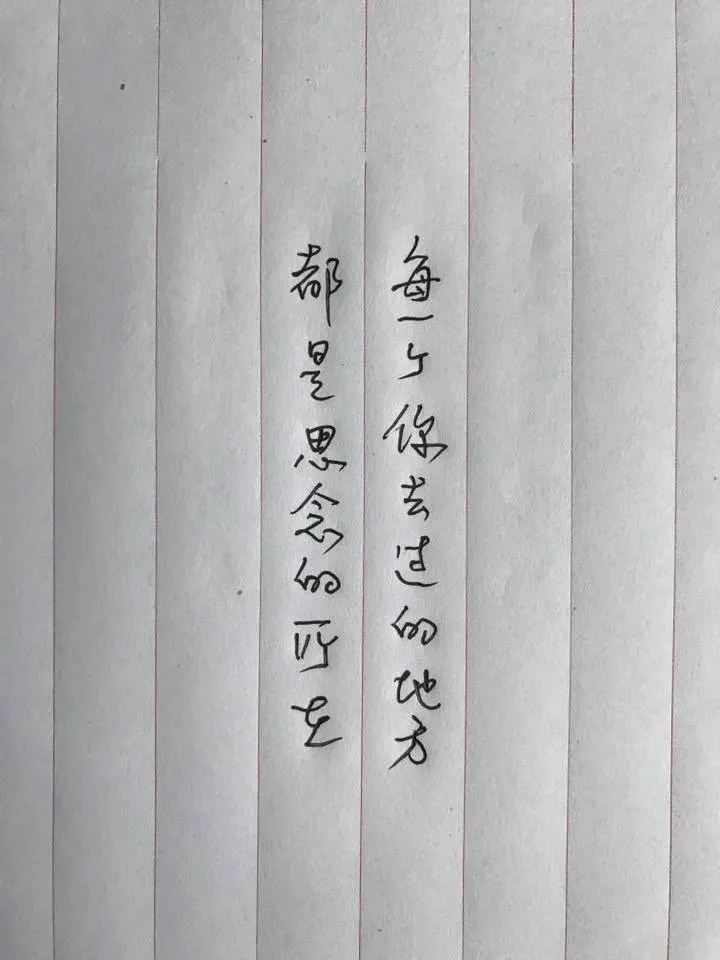 每一个你去过的地方
都是思念的所在